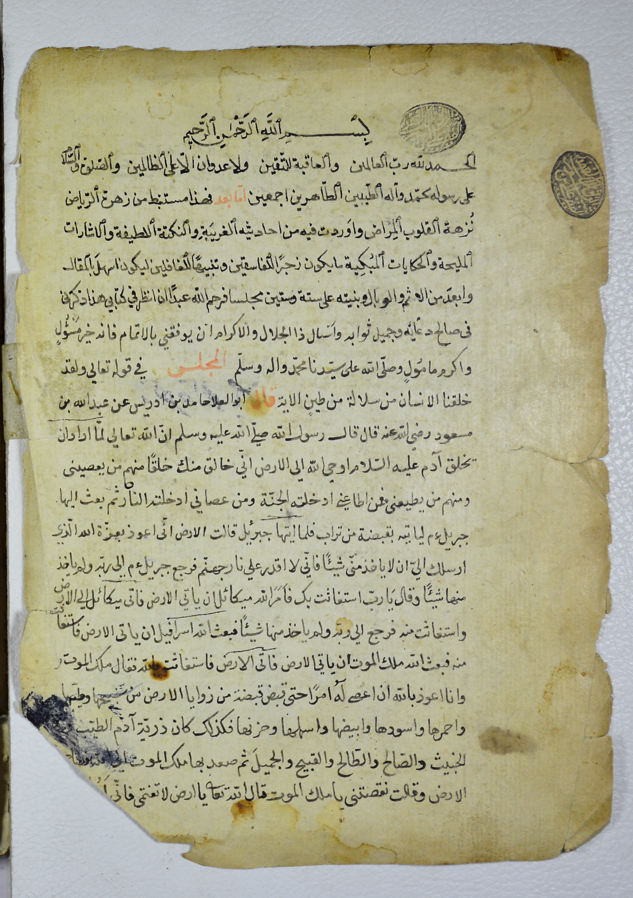 بسم الله الرحمن الرحيم
الحمد لله رب العالمين والعاقبة للمتقين ولا عدوان الا على الظالمين والصلوة والسلام
على رسوله محمد واله الطيبين الطاهرين اجمعين اما بعد فهذا مستنبط من زهرة الرياض
نزهة القلوب المراض واوردت فيه من احاديثه الغريبة والنكتة اللطيفة والاشارات
المليحة والحكايات المبكية ما يكون زجرا للفاسقين وتنبيها للغافلين ليكون اسهل المقال
وابعد من الاثم والوبال وبنيته على ستة وستين مجلسا فرحم الله عبدا نظر في كتابي هذا ذكرني
في صالح دعائه وجميل ثوابه واسال ذا الجلال والاكرام ان يوفقني بالاتمام فانه خير مسؤل
واكرم مامول وصلى الله على سيدنا محمد واله وسلم المجلس في قوله تعالى ولقد
خلقنا الانسان من سلالة من طين الاية قال ابو العلا حامد بن ادريس عن عبد الله بن
مسعود رضى الله عنه قال قال رسول الله صلى الله عليه وسلم ان الله تعالى لما اراد ان
يخلق آدم عليه السلام اوحى الله الى الارض انى خالق منك خلقا منهم من يعصينى
ومنهم من يطيعنى فمن اطاعنى ادخلته الجنة ومن عصانى ادخلته النار ثم بعث اليها
جبريل ءم لياتيه بقبضة من تراب فلما اتيها جبرئيل قالت الارض انى اعوذ بعزة الله الذى
ارسلك الى ان لا ياخذ منى شيئا فانى لا اقدر على نار جهنم فرجع جبريل ءم الى ربه ولم ياخذ
منها شيئا وقال يا رب استغاثت بك فامر الله ميكائل ان ياتى الارض فاتى ميكائل الى الارض
واستغاثت منه فرجع الى ربه ولم ياخذ منها شيئا فبعث الله اسرافيل ان ياتى الارض فاستغاثت
منه فبعث الله ملك الموت ان ياتى الارض فاتى الارض فاستغاثت بالله فقال ملك الموت
وانا اعوذ بالله ان اعصى له امرا حتى قبض قبضة من زوايا الارض من وطيبها
واحمرها واسودها وابيضها واسهلها وحزنها فكذلك كان ذرية آدم الطيب
الخبيث والصالح والطالح والقبيح والجميل ثم صعد بها ملك الموت الى
الارض وقالت نقصتنى يا ملك الموت قال الله تعا يا ارض لا تغتمى فانى